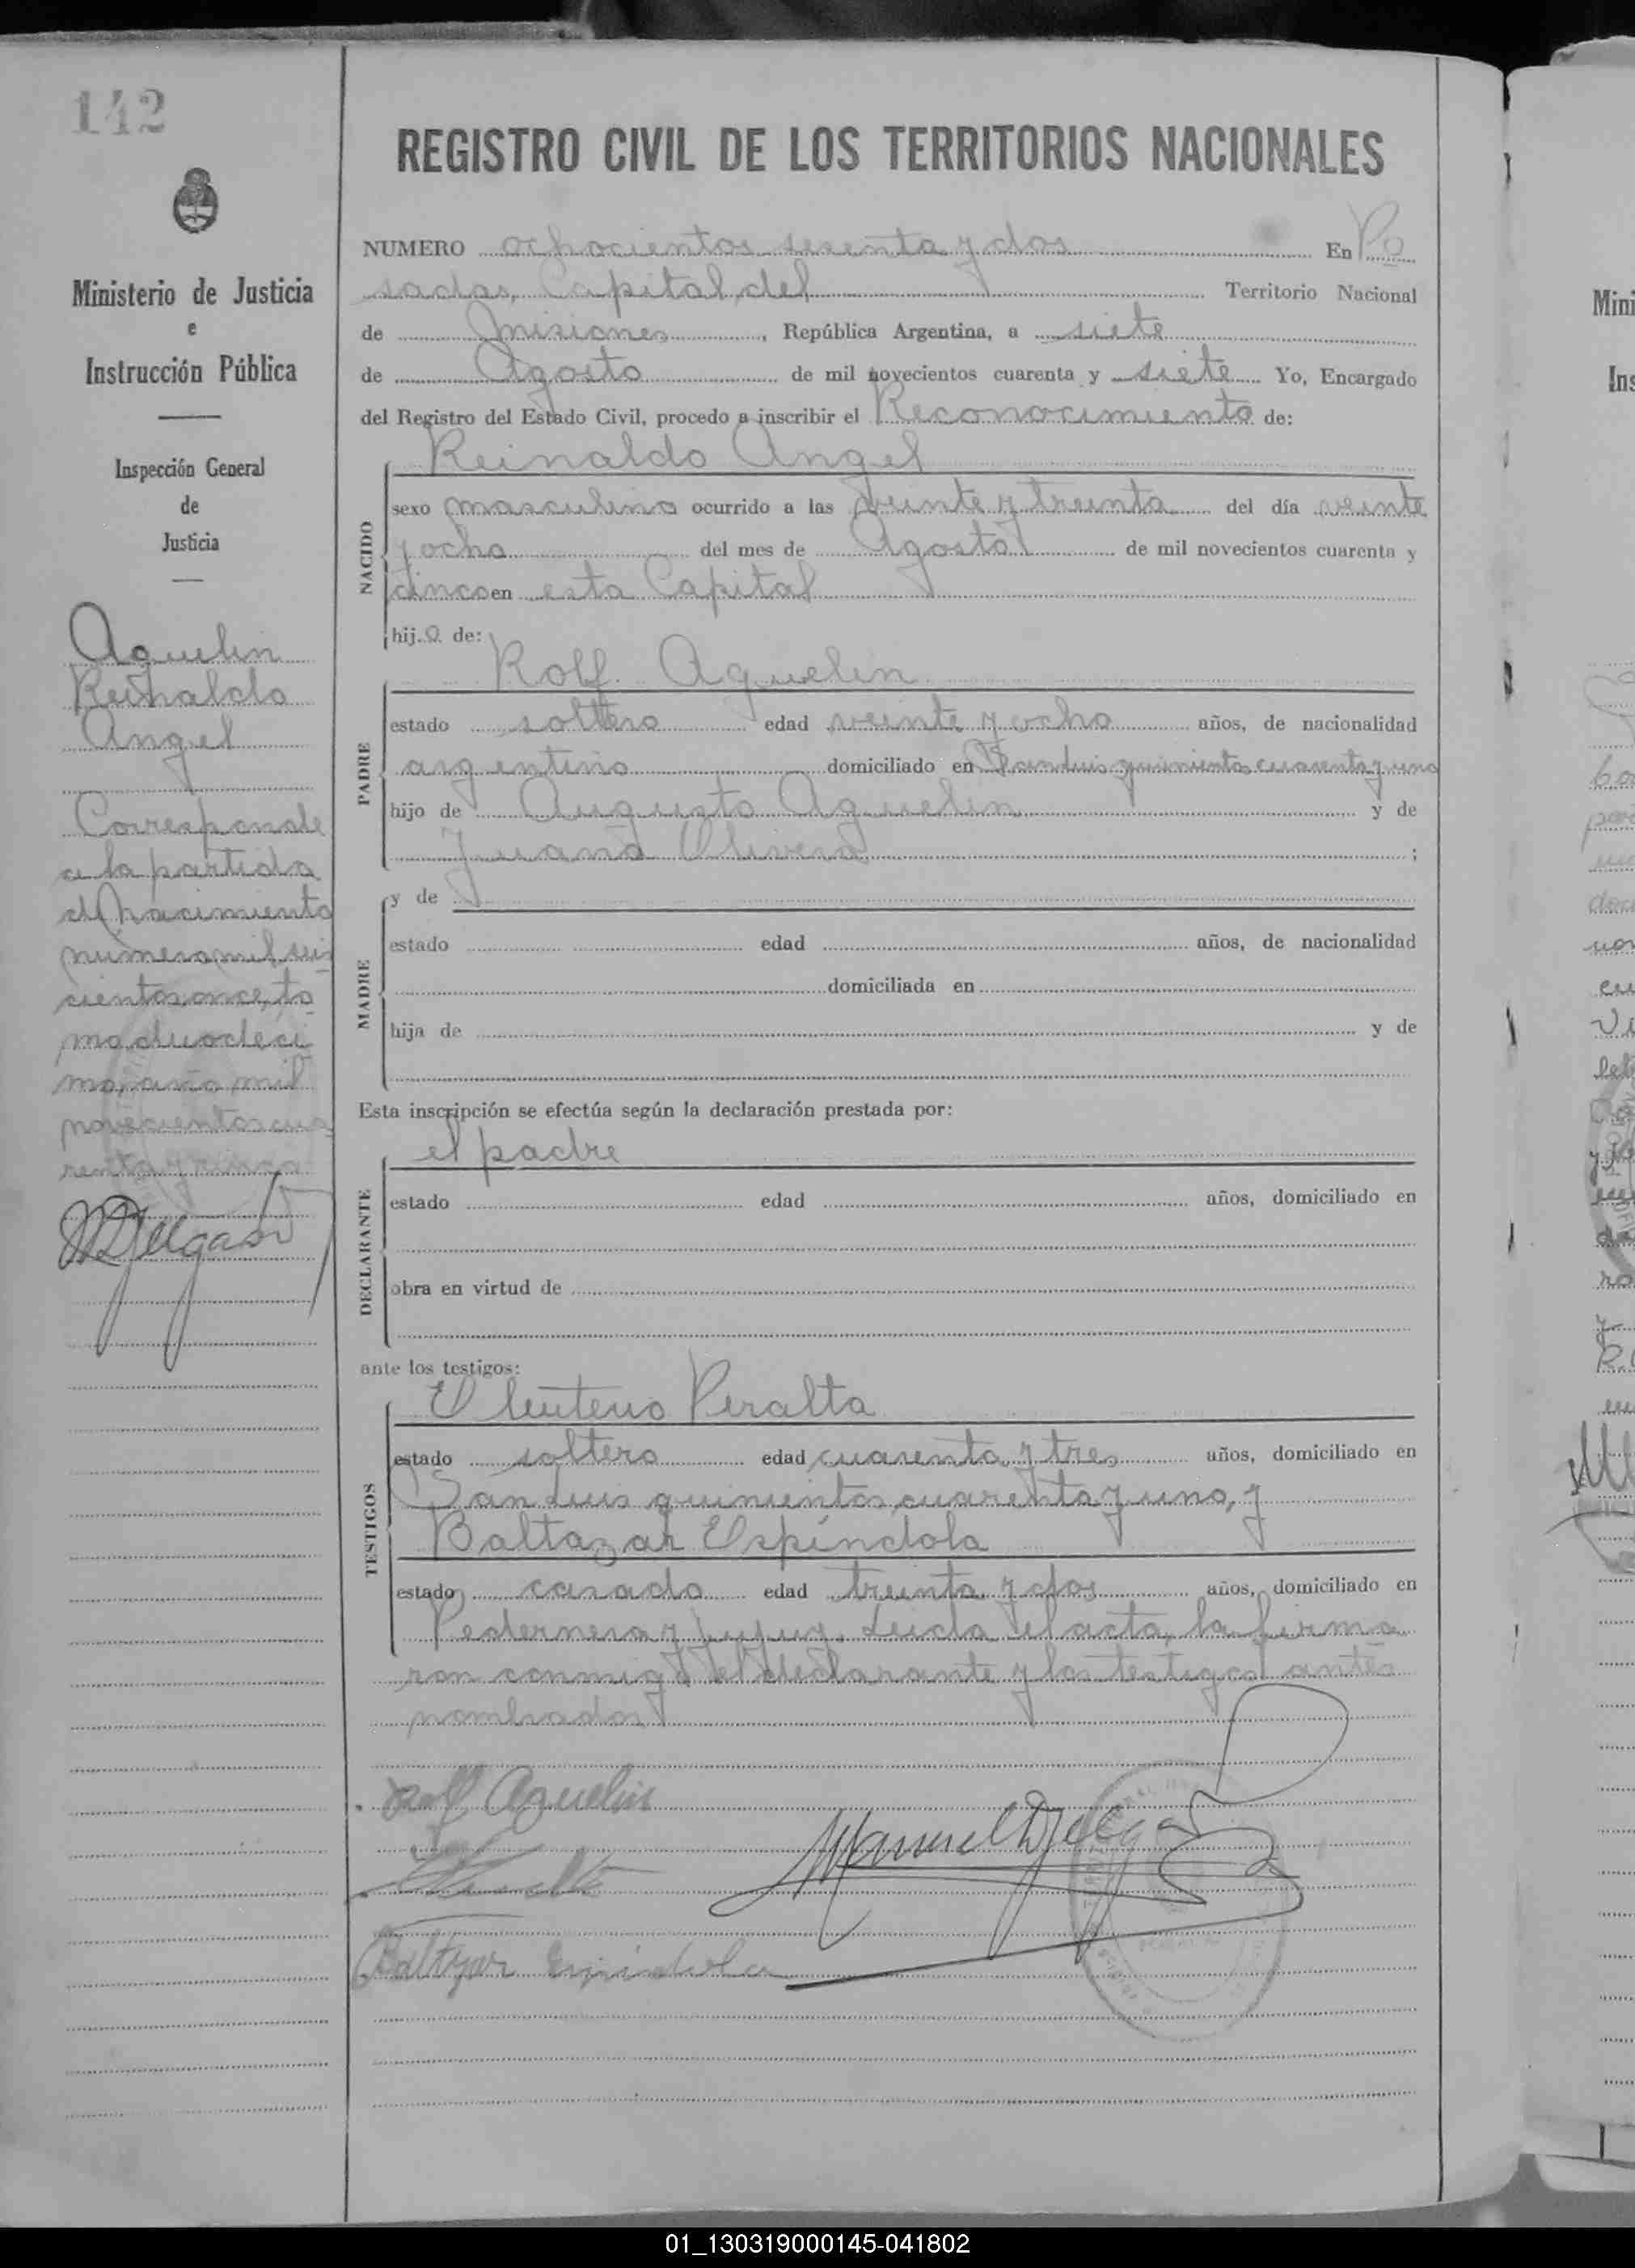 142
Ministerio de Justicia
e
Instrucción Pública
Inspección General
de
Justicia
Aquelin
Reinaldo
Angel
Corresponde
a la partida
d/ nacimiento
numero mil seis
cientos once, to
mo duodeci
mo, año mil
novecientos cua
renta y cinco
MDelgado
REGISTRO CIVIL DE LOS TERRITORIOS NACIONALES
NUMERO ochocientos sesenta y dos En Po
sadas, Capital del Territorio Nacional
de Misiones, República Argentina, a siete
de Agosto de mil novecientos cuarenta y siete Yo, Encargado
del Registro del Estado Civil, procedo a inscribir el Reconocimiento de:
NACIDO
Reinaldo Angel
sexo masculino ocurrido a las veinte y treinta del día veinte
y ocho del mes de Agosto de mil novecientos cuarenta y
cinco en esta Capital
hijo de:
PADRE
Rolf Aquelin
estado soltero edad veinte y ocho años, de nacionalidad
argentino domiciliado en San Luis quinientos cuarenta y uno
hijo de Augusto Aquelin y de
Juana Olivera;
MADRE
y de
estado edad años, de nacionalidad
domiciliada en
hija de y de
Esta inscripción se efectúa según la declaración prestada por:
DECLARANTE
el padre
estado edad años, domiciliado en
obra en virtud de
ante los testigos:
TESTIGOS
Eleuterio Peralta
estado soltero edad cuarenta y tres años, domiciliado en
San Luis quinientos cuarenta y uno, y
Baltazar Espíndola
estado casado edad treinta y dos años, domiciliado en
Pedernera y Jujuy. Leida el acta, la firma
ron conmigo el declarante y los testigos antes
nombrados
Rolf Aquelin
Manuel Delgado
Baltazar Espindola
01_130319000145-041802